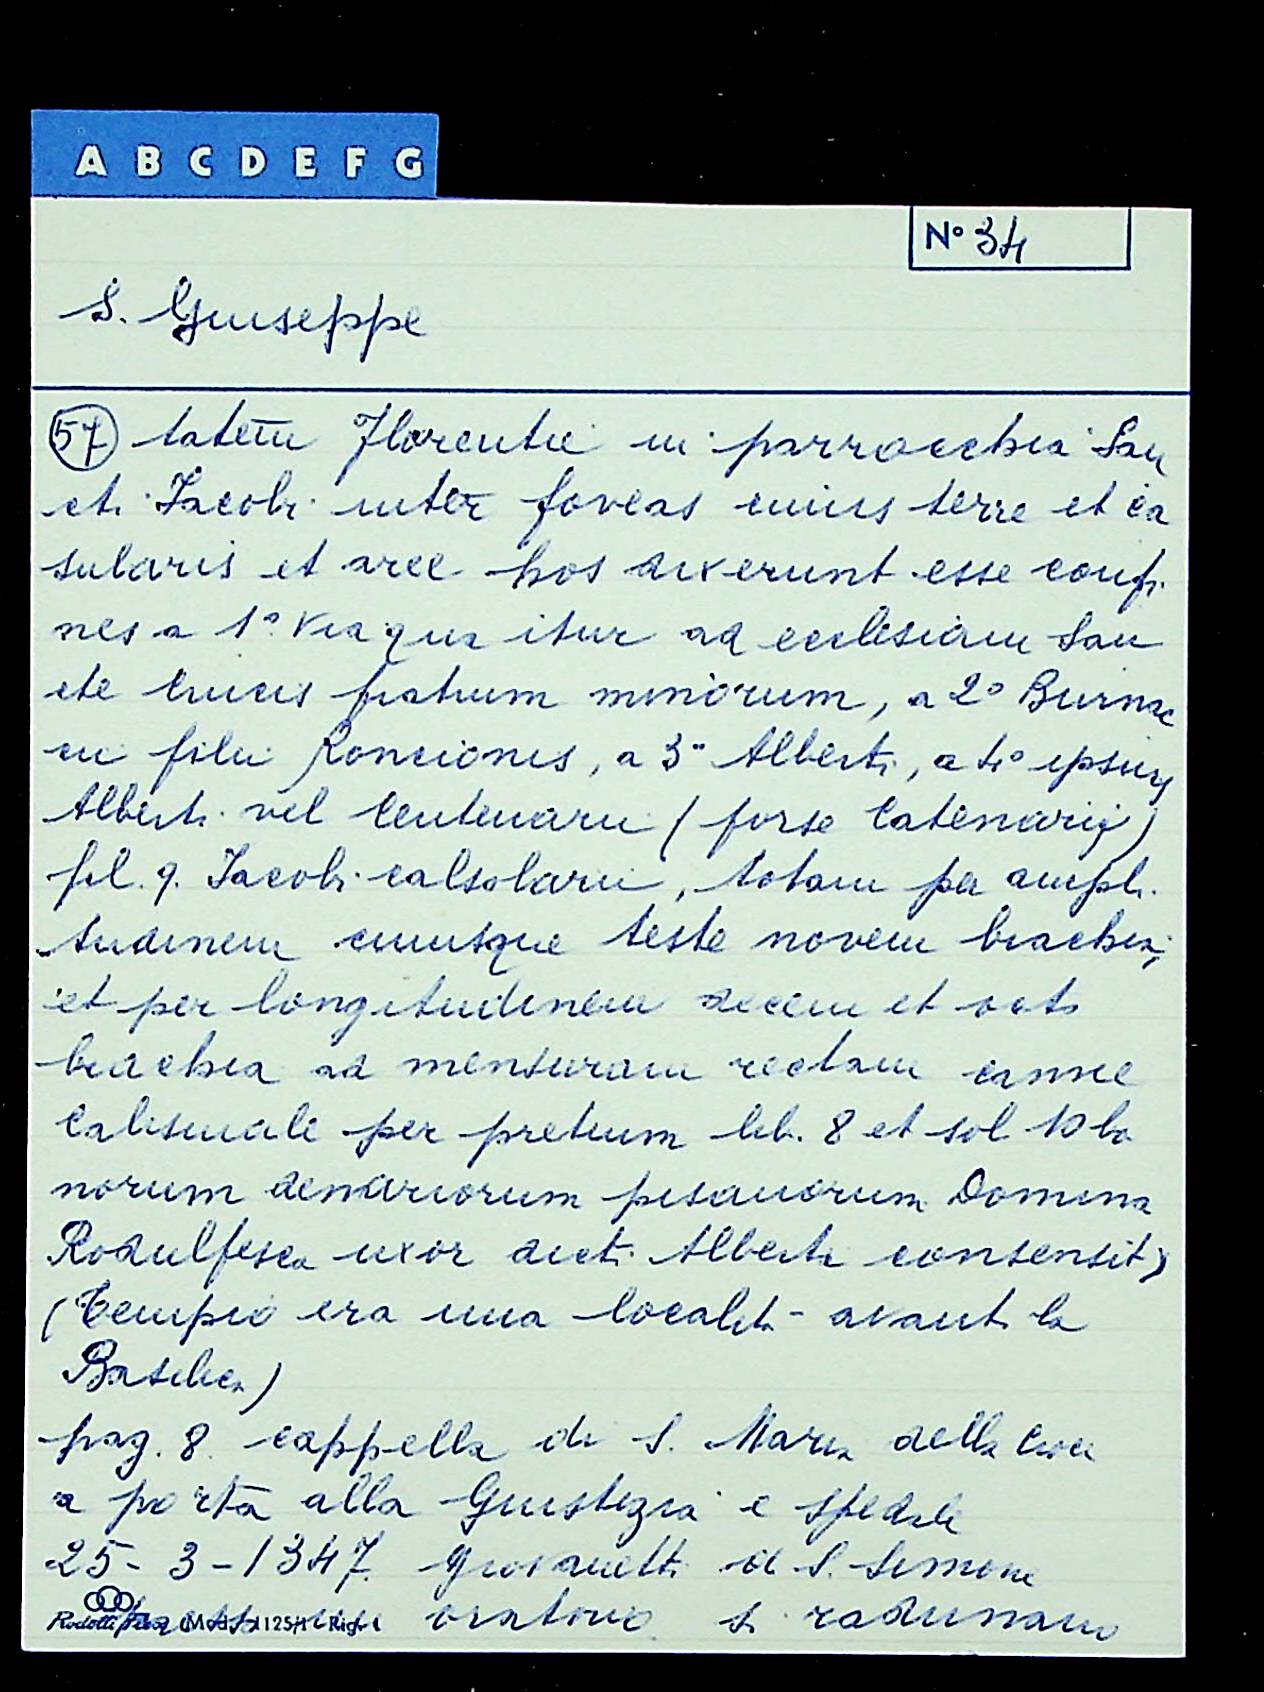 A B C D E F G
N° 34
S. Giuseppe
57 tatem Florentie in parrocchia San
cti Iacobi inter foveas cuius terre et ca
sularis et aree hos dixerunt esse confi
nes a 1° via qua itur ad ecclesiam San
cte Crucis fratrum minorum, a 2° Burnac
cii filii Roncionis, a 3° Alberti, a 4° ipsius
Alberti vel Centenarii (forse Catenarii)
fil. q. Iacobi calsolarii, totam per ampli
tudinem cuiusque teste novem brachia;
et per longitudinem decem et octo
brachia ad mensuram rectam canne
Calismale per pretium lib. 8 et sol 10 bo
norum denariorum pisanorum Domina
Rodulfesca uxor dicti Alberti consensit)
(Tempio era una località avanti la
Basilica)
pag. 8 cappella di S. Maria della Croce
a porta alla Giustizia e Spedale
25-3-1347. Giovanetti di S. Simone
oratorio si radunano